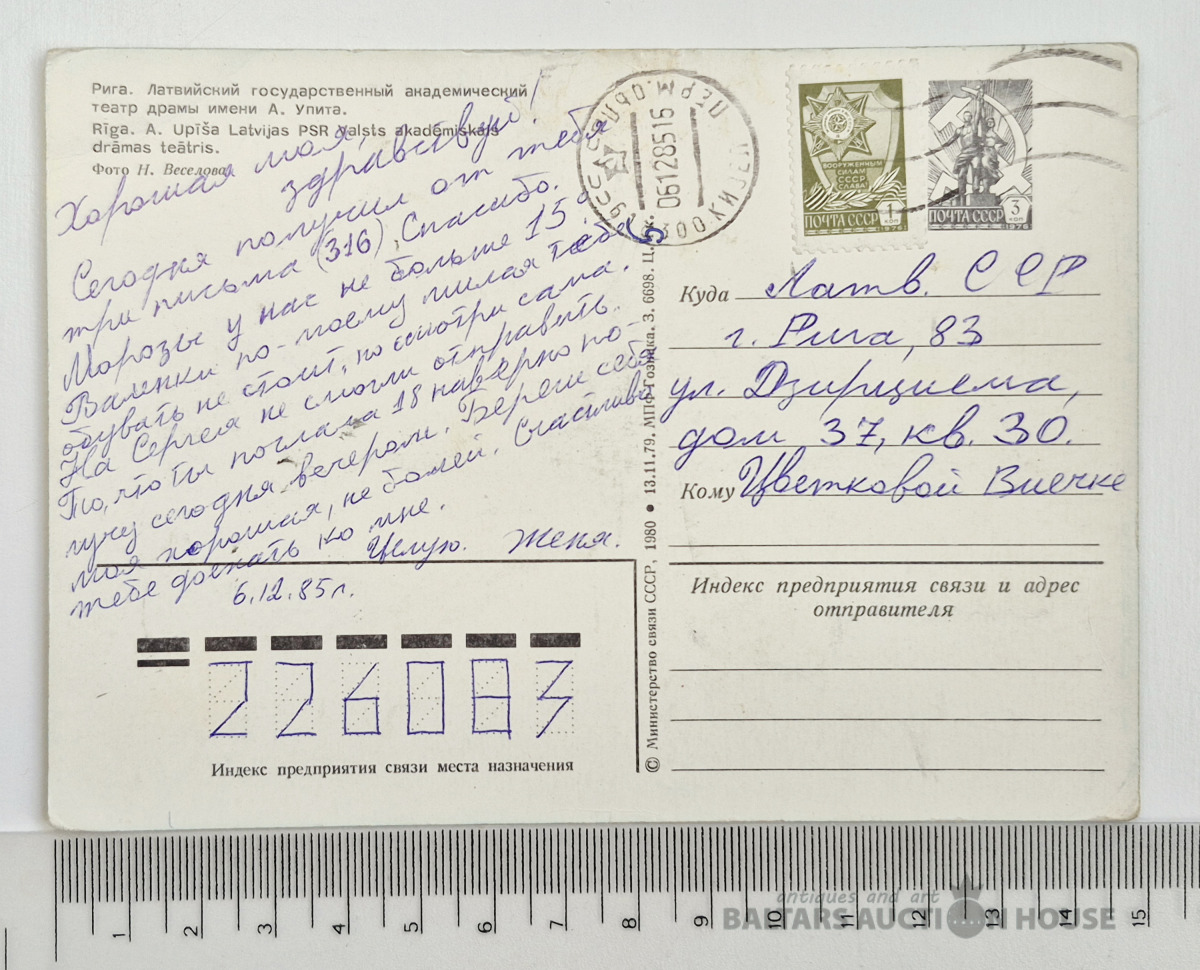 Рига. Латвийский государственный академический
театр драмы имени А. Упита.
Rīga. A. Upīša Latvijas PSR Valsts akadēmiskais
drāmas teātris.
Фото Н. Веселова
Хорошая моя,
здравствуй!
Сегодня получил от тебя
три письма (316). Спасибо.
Морозы у нас не больше 15°.
Валенки по-моему милая тебе
обувать не стоит, но смотри сама.
На Сергея не смогли отправить.
То, что ты послала 18 наверно по-
лучу сегодня вечером. Береги себя
моя хорошая, не болей. Счастливо
тебе доехать ко мне.
Целую. Женя.
6.12.85г.
226083
Индекс предприятия связи места назначения
© Министерство связи СССР, 1980 • 13.11.79. МПФ Гознака. З. 6698. Ц.
СССР
ПЕРМ. ОБЛ.
06128516
ВООРУЖЕННЫМ
СИЛАМ
СССР
СЛАВА!
ПОЧТА СССР 1 КОП
1976
ПОЧТА СССР 3 КОП
1976
Куда Латв. ССР
г. Рига, 83
ул. Дзирциема,
дом 37, кв. 30.
Кому Цветковой Виечке
Индекс предприятия связи и адрес
отправителя
1 2 3 4 5 6 7 8 9 10 11 12 13 14 15
antiques and art
BALTARS AUCTION HOUSE